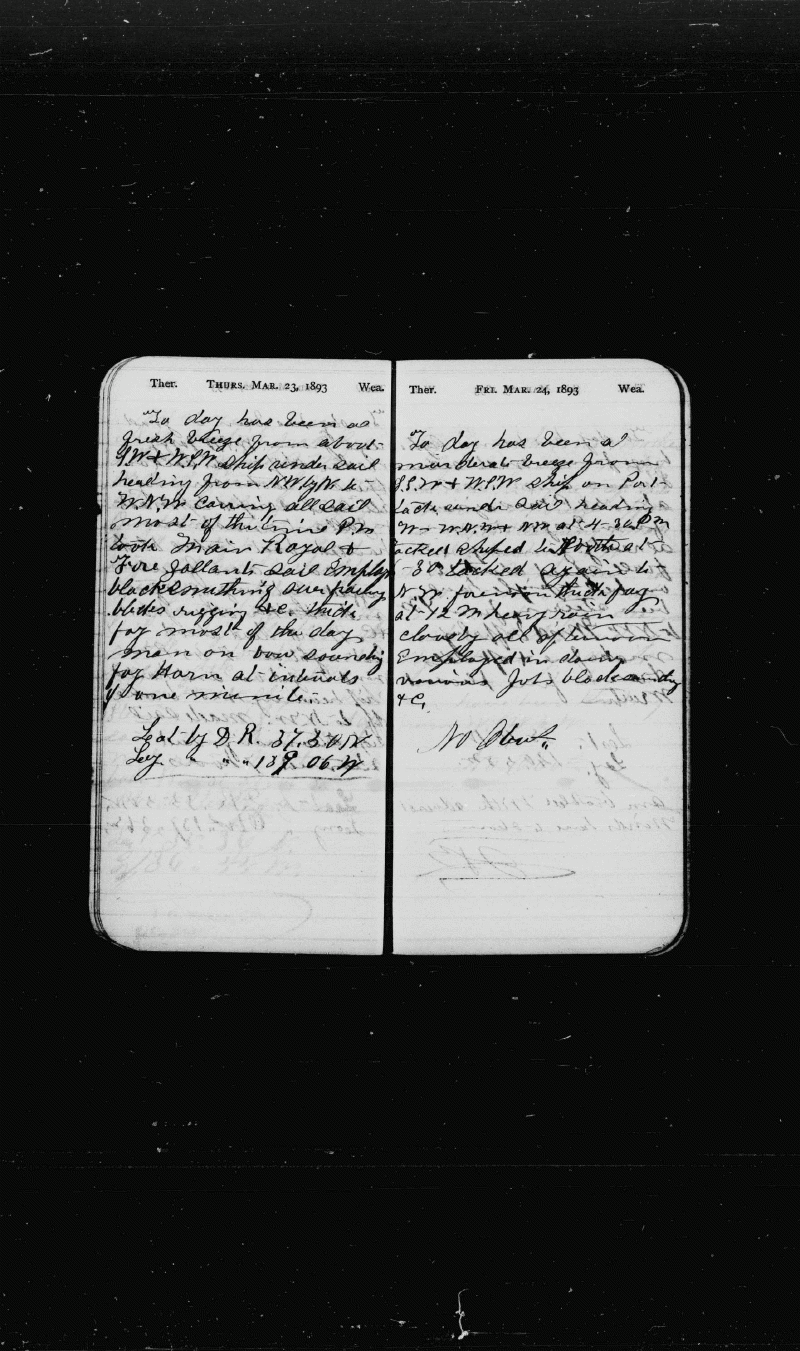 Ther. THURS. MAR. 23, 1893 Wea.
To day has been a
fresh breeze from about
S.W & W.S.W ship under sail
heading from N.W by N to
W.N.W Carring all sail
most of the time P.m
took Main Royal &
Fore Gallants sail Employ
blacksmithing
blocks rigging &c. thick
fog most of the day
man on bow sounding
fog Horn at intervals
of one minite
Lat by D R. 37.30 N
Log " " " 139 06 W
Ther. FRI. MAR. 24, 1893 Wea.
To day has been a
moderate breeze from
S.S.W & W.S.W ship on Port
tack under sail heading
W W.N.W & N.W at 4-30 P m
tacked ship to at
30 tacked again to
N.W thick fog
at 12 m heavy rain
cloudy all afternoon
Employed in doing
various Jobs
&c.
No Obs